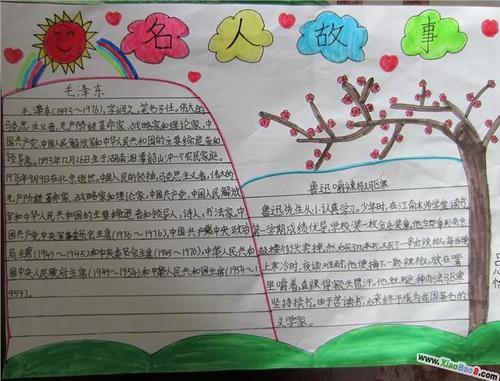 名人故事
毛泽东
毛泽东(1893~1976),字润之,笔名子任。伟大的
马克思主义者,无产阶级革命家、战略家和理论家,中
国共产党、中国人民解放军和中华人民共和国的主要缔造者和
领导者。1893年12月26日生于湖南湘潭韶山冲一个农民家庭。
1976年9月9日在北京逝世。中国人民的领袖,马克思主义者,伟大的
无产阶级革命家、战略家和理论家,中国共产党、中国人民解放
军和中华人民共和国的主要缔造者和领导人,诗人,书法家。中
国共产党中央军事委员会主席
中央政治
局主席(1943~1945)和中央委员会主席(1945~1976),中华人民共和
国中央人民政府主席(1949~1954)和中华人民共和国主席(1954~1
959)。
鲁迅嚼辣椒驱寒
鲁迅先生从小认真学习。少年时,在江南水师学堂读书
第一学期成绩优异,学校奖给他一枚金质奖章。他立即拿到南京
鼓楼街头卖掉,然后买了几本书,又买了一串红辣椒。每当晚
上寒冷时,夜读难耐,他便摘下一颗辣椒,放在嘴
里嚼着,直辣得额头冒汗。他就用这种办法驱寒
坚持读书。由于苦读书,后来终于成为我国著名的
文学家。
www.XiaoBao8.com